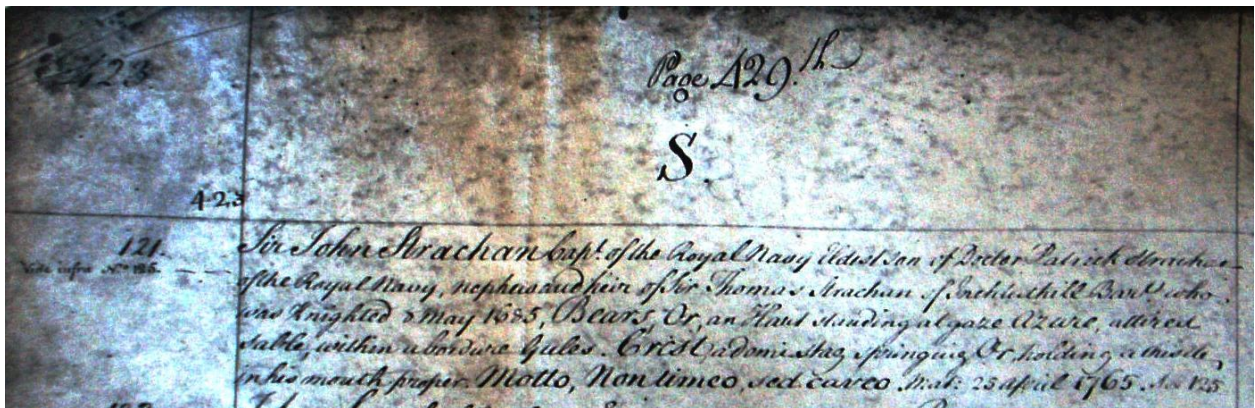 423
Page 429.th
S.
423
121.
Vide infra No 125.
Sir John Strachan Capt. of the Royal Navy Eldest Son of Doctor Patrick Strachan
of the Royal Navy, nephew and heir of Sir Thomas Strachan of Inchtuthill Bart. who
was Knighted 8 May 1685, Bears Or, an Hart standing at gaze Azure, attired
Sable, within a bordure Gules. Crest, a demi Stag springing Or, holding a thistle
in his mouth proper. Motto, Non timeo, sed caveo. Mat: 25 april 1765. See 125